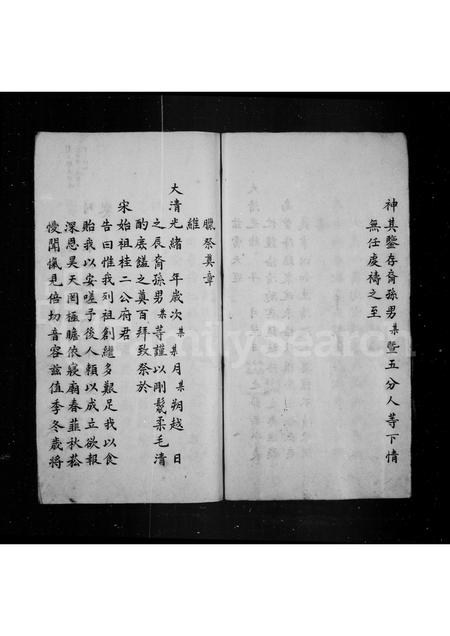 神其鑒存裔孫男某暨五分人等下情
無任虔禱之至
臘祭奠章
維
大清光緒 年歲次某某月某朔越 日
之辰裔孫男某等謹以剛鬛柔毛清
酌庶饈之奠百拜致祭於
宋始祖桂二公府君
告曰惟我列祖創繼多艱足我以食
貽我以安嗟予後人賴以成立欲報
深恩昊天罔極瞻依寢廟春韮秋菘
僾聞愾見倍切音容茲值季冬歲將
FamilySearch